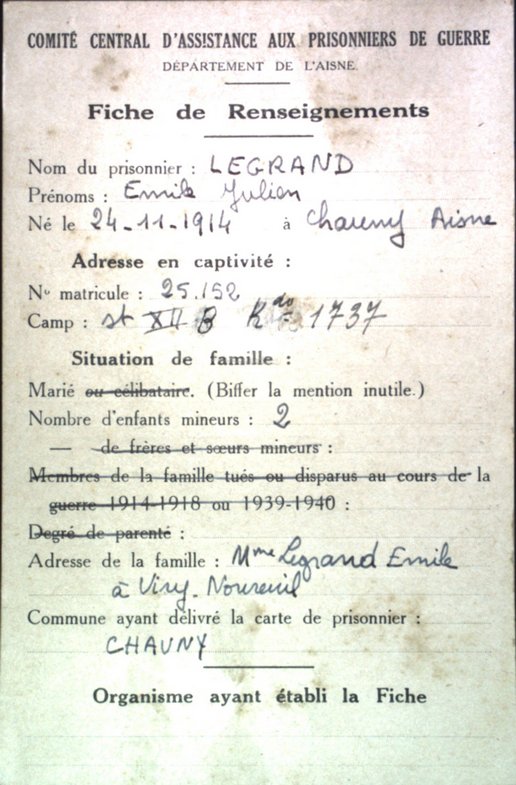 COMITÉ CENTRAL D'ASSISTANCE AUX PRISONNIERS DE GUERRE
DÉPARTEMENT DE L'AISNE.
Fiche de Renseignements
Nom du prisonnier : LEGRAND
Prénoms : Emile Julien
Né le 24-11-1914 à Chauny Aisne
Adresse en captivité :
No matricule : 25.152
Camp : st XII B Kdo 1737
Situation de famille :
Marié ou célibataire. (Biffer la mention inutile.)
Nombre d'enfants mineurs : 2
— de frères et sœurs mineurs :
Membres de la famille tués ou disparus au cours de la
guerre 1914-1918 ou 1939-1940 :
Degré de parenté :
Adresse de la famille : Mme Legrand Emile
à Viry-Noureuil
Commune ayant délivré la carte de prisonnier :
CHAUNY
Organisme ayant établi la Fiche